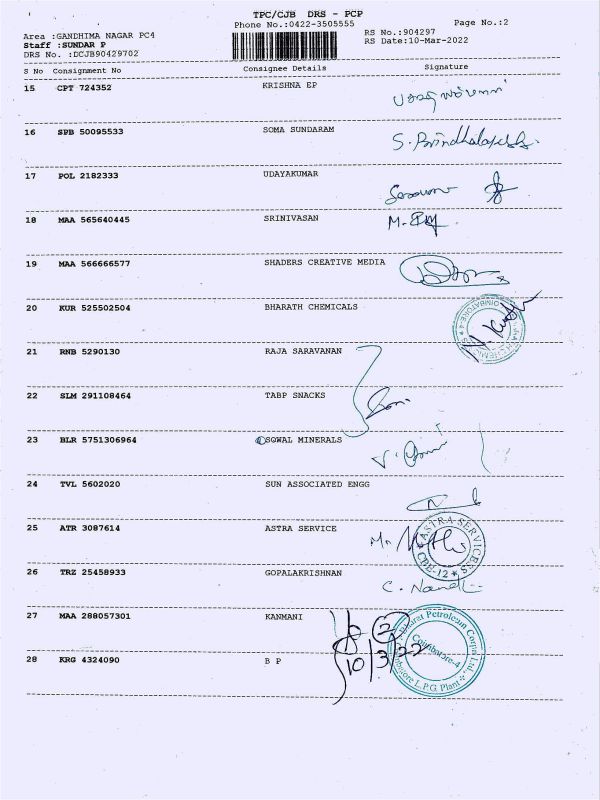 TPC/CJB DRS - PCP
Phone No.:0422-3505555
Page No.:2
Area :GANDHIMA NAGAR PC4
Staff :SUNDAR P
DRS No. :DCJB90429702
RS No.:904297
RS Date:10-Mar-2022
S No Consignment No Consignee Details Signature
15 CPT 724352 KRISHNA EP
16 SPB 50095533 SOMA SUNDARAM
17 POL 2182333 UDAYAKUMAR
18 MAA 565640445 SRINIVASAN
19 MAA 566666577 SHADERS CREATIVE MEDIA
20 KUR 525502504 BHARATH CHEMICALS
21 RNB 5290130 RAJA SARAVANAN
22 SLM 291108464 TABP SNACKS
23 BLR 5751306964 SOWAL MINERALS
24 TVL 5602020 SUN ASSOCIATED ENGG
25 ATR 3087614 ASTRA SERVICE
ASTRA SERVICES
CBE-12
26 TRZ 25458933 GOPALAKRISHNAN
27 MAA 288057301 KANMANI
28 KRG 4324090 B P
10/3/22
Bharat Petroleum Corpn Ltd.
Coimbatore-4
Coimbatore L.P.G. Plant